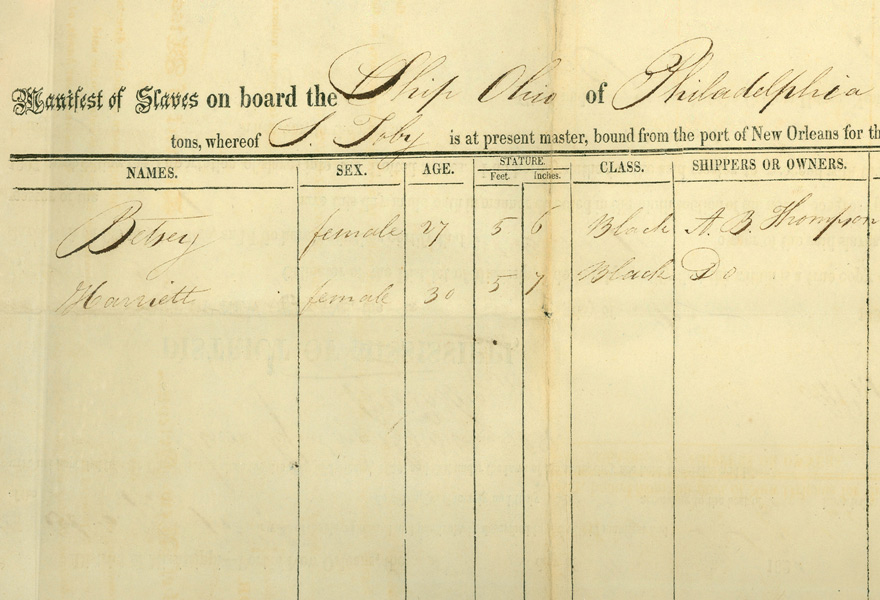 Manifest of Slaves on board the Ship Ohio of Philadelphia
tons, whereof S. Toby is at present master, bound from the port of New Orleans for th
NAMES. SEX. AGE. STATURE. Feet. Inches. CLASS. SHIPPERS OR OWNERS.
Betsey female 27 5 6 Black A. B. Thompson
Harriett female 30 5 7 Black Do